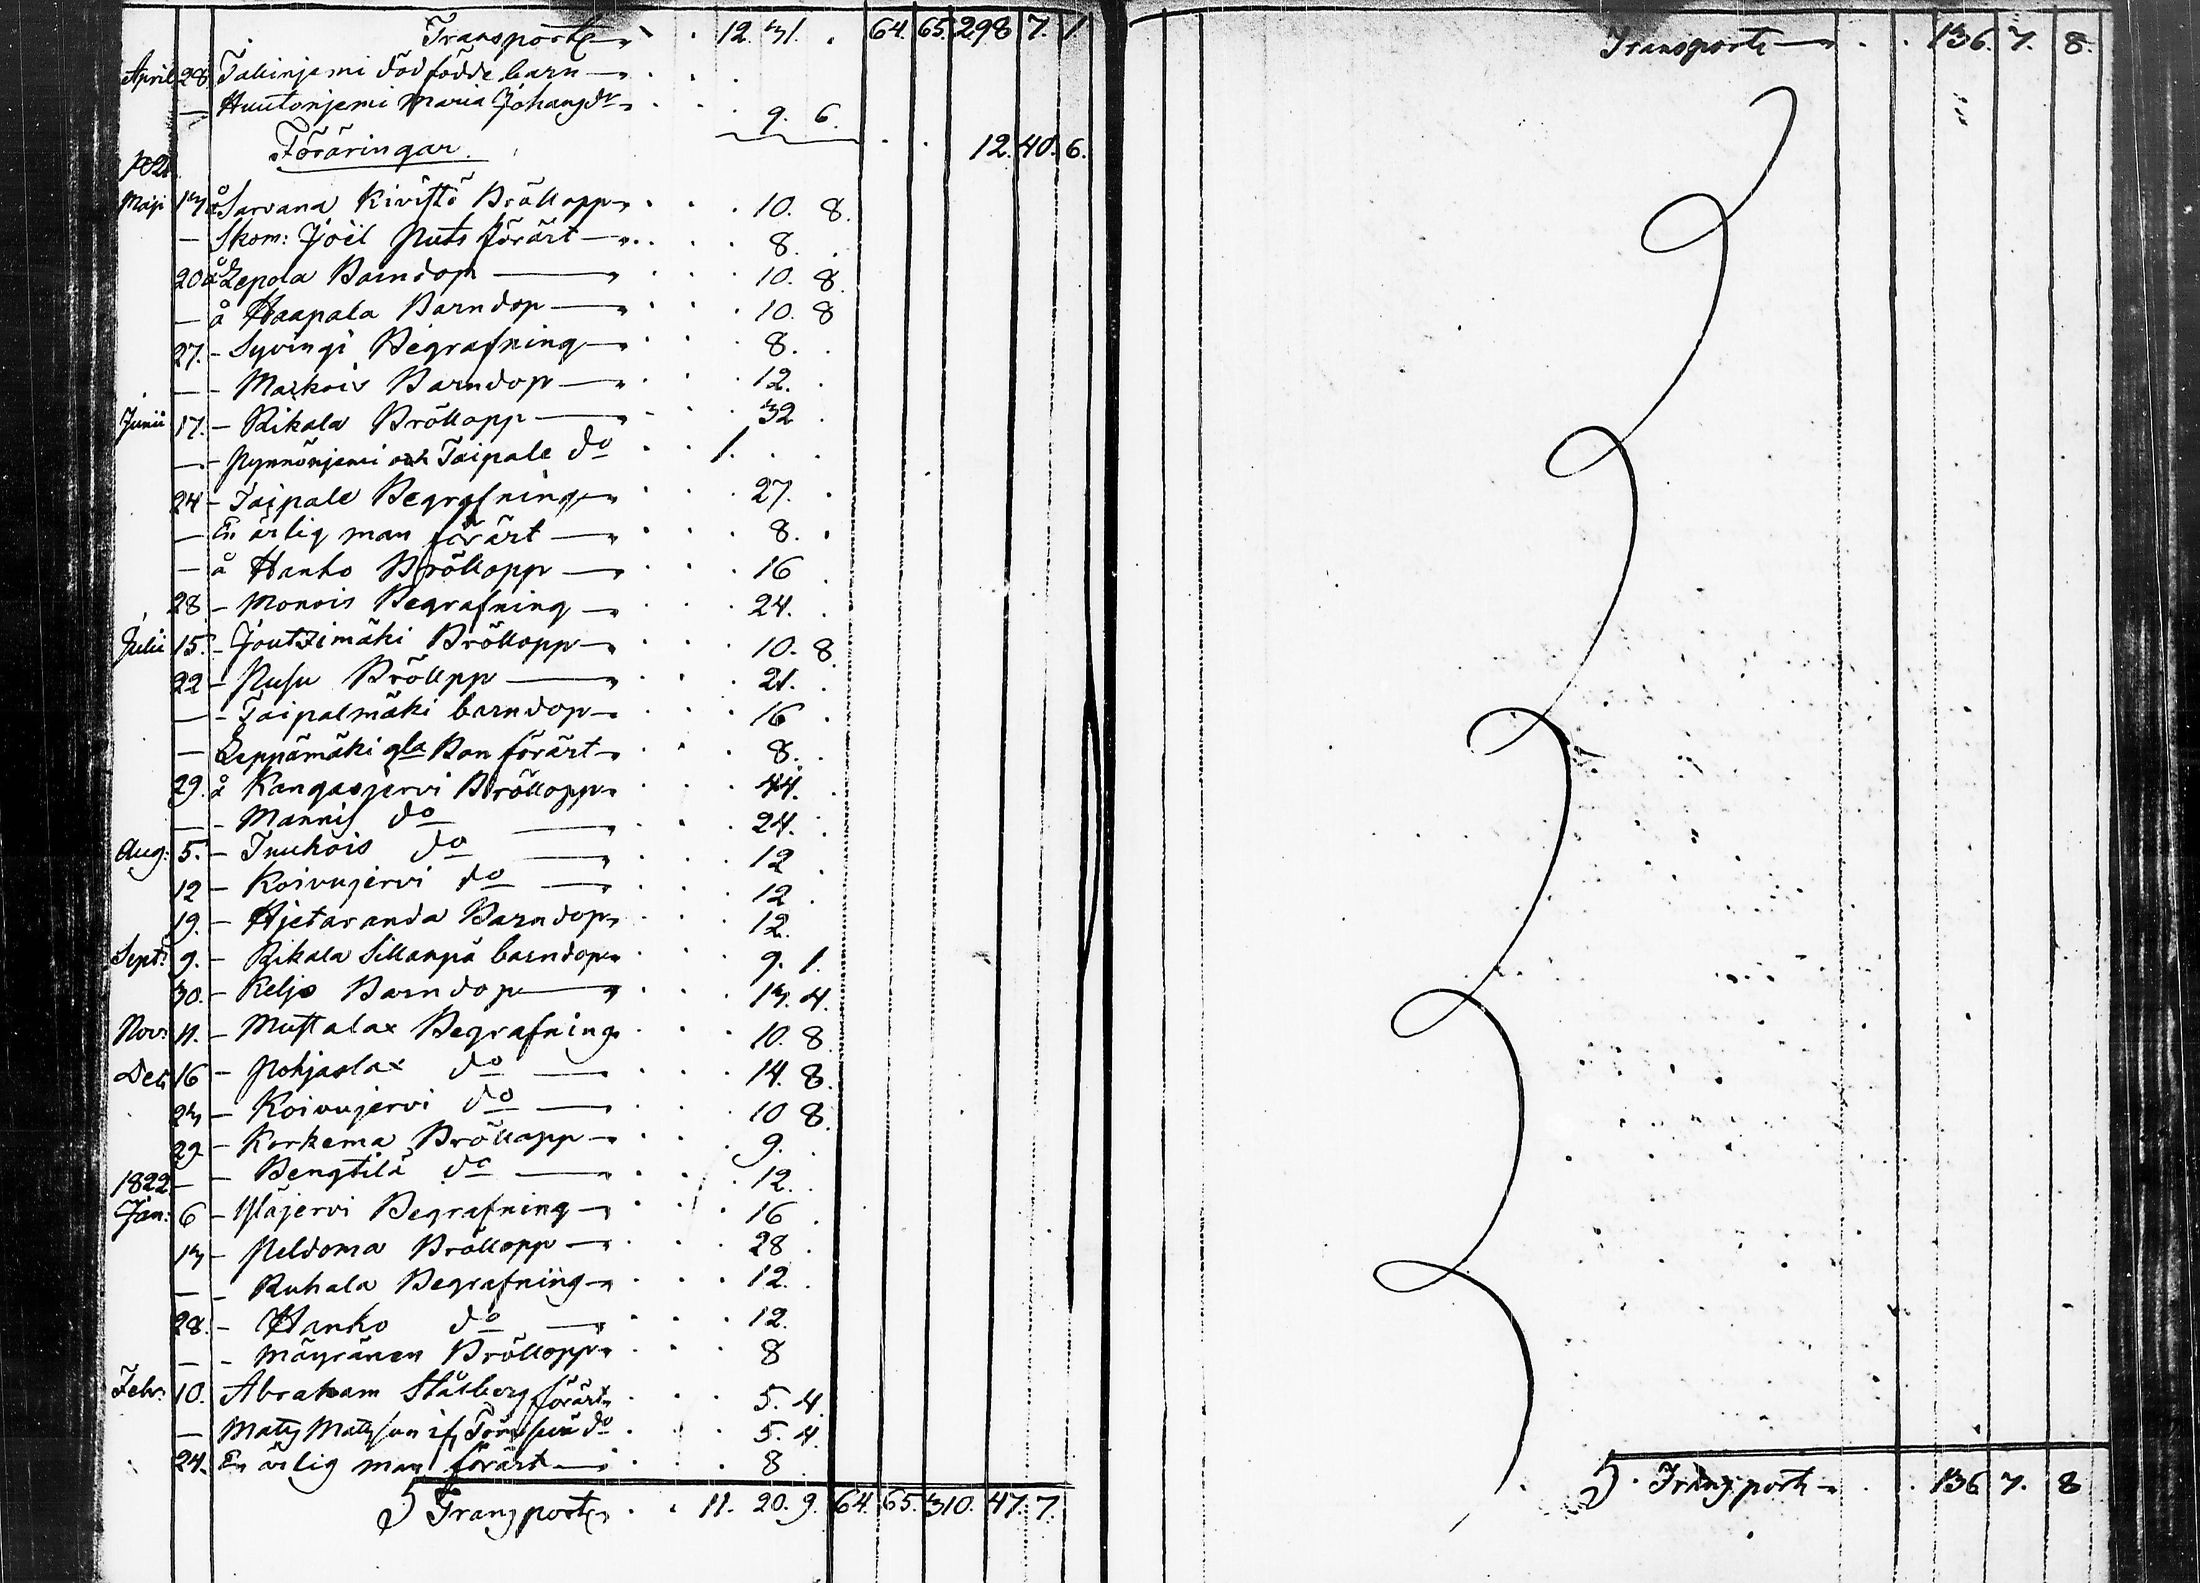 Transport 12. 31. 64. 65. 298 7. 1
April 28 Takinjemi dödfödde barn
— Huutonjemi Maria Johansdr 9. 6.
Föräringar. 12. 40. 6.
1821
Maji 13 å Sarvana Kivistö Bröllopp 10. 8.
— Skom: Joël Puts förärt 8.
20 å Lepola Barndop 10. 8.
— å Haapala Barndop 10. 8
27. - Syvingi Begrafning 8.
— - Markois Barndop 12.
Junii 17. - Rikala Bröllopp 32
— - Pynnönjemi och Taipale do 1.
24 - Taipale Begrafning 27.
— En ärlig man förärt 8.
— å Hanko Bröllopp 16
28 - Monois Begrafning 24.
Julii 15. - Joutzimäki Bröllopp 10. 8.
22 - Pusu Bröllpp 21.
— - Taipalmäki barndop 16
— Leppämäki gla Bon förärt 8.
29. å Kangasjervi Bröllopp 44.
— - Mannis do 24.
Aug: 5. - Inuhois do 12
12 - Koivujervi do 12
19. - Hjetaranda Barndop 12.
Sept: 9. - Rikala Sillanpä barndop 9. 1.
30. - Keljo Barndop 13. 4.
Nov: 11. - Mustalax Begrafning 10. 8
Dec: 16 - Pohjaslax do 14. 8.
23 - Koivujervi do 10 8
29 - Korkema Bröllopp 9.
1822 — - Bengtilä do 12.
Jan: 6 - Yläjervi Begrafning 16
13 - Peldoma Bröllopp 28
— - Ruhala Begrafning 12.
28. - Hanko do 12.
— - Mäyränen Bröllopp 8
Febr: 10. Abraham Stålberg förärt 5. 4
— Mats Matsson if do 5. 4
24. En ärlig man förärt 8
Transport 11. 20. 9. 64. 65. 310. 47. 7.
Transport 136. 7. 8.
Transport 136 7. 8